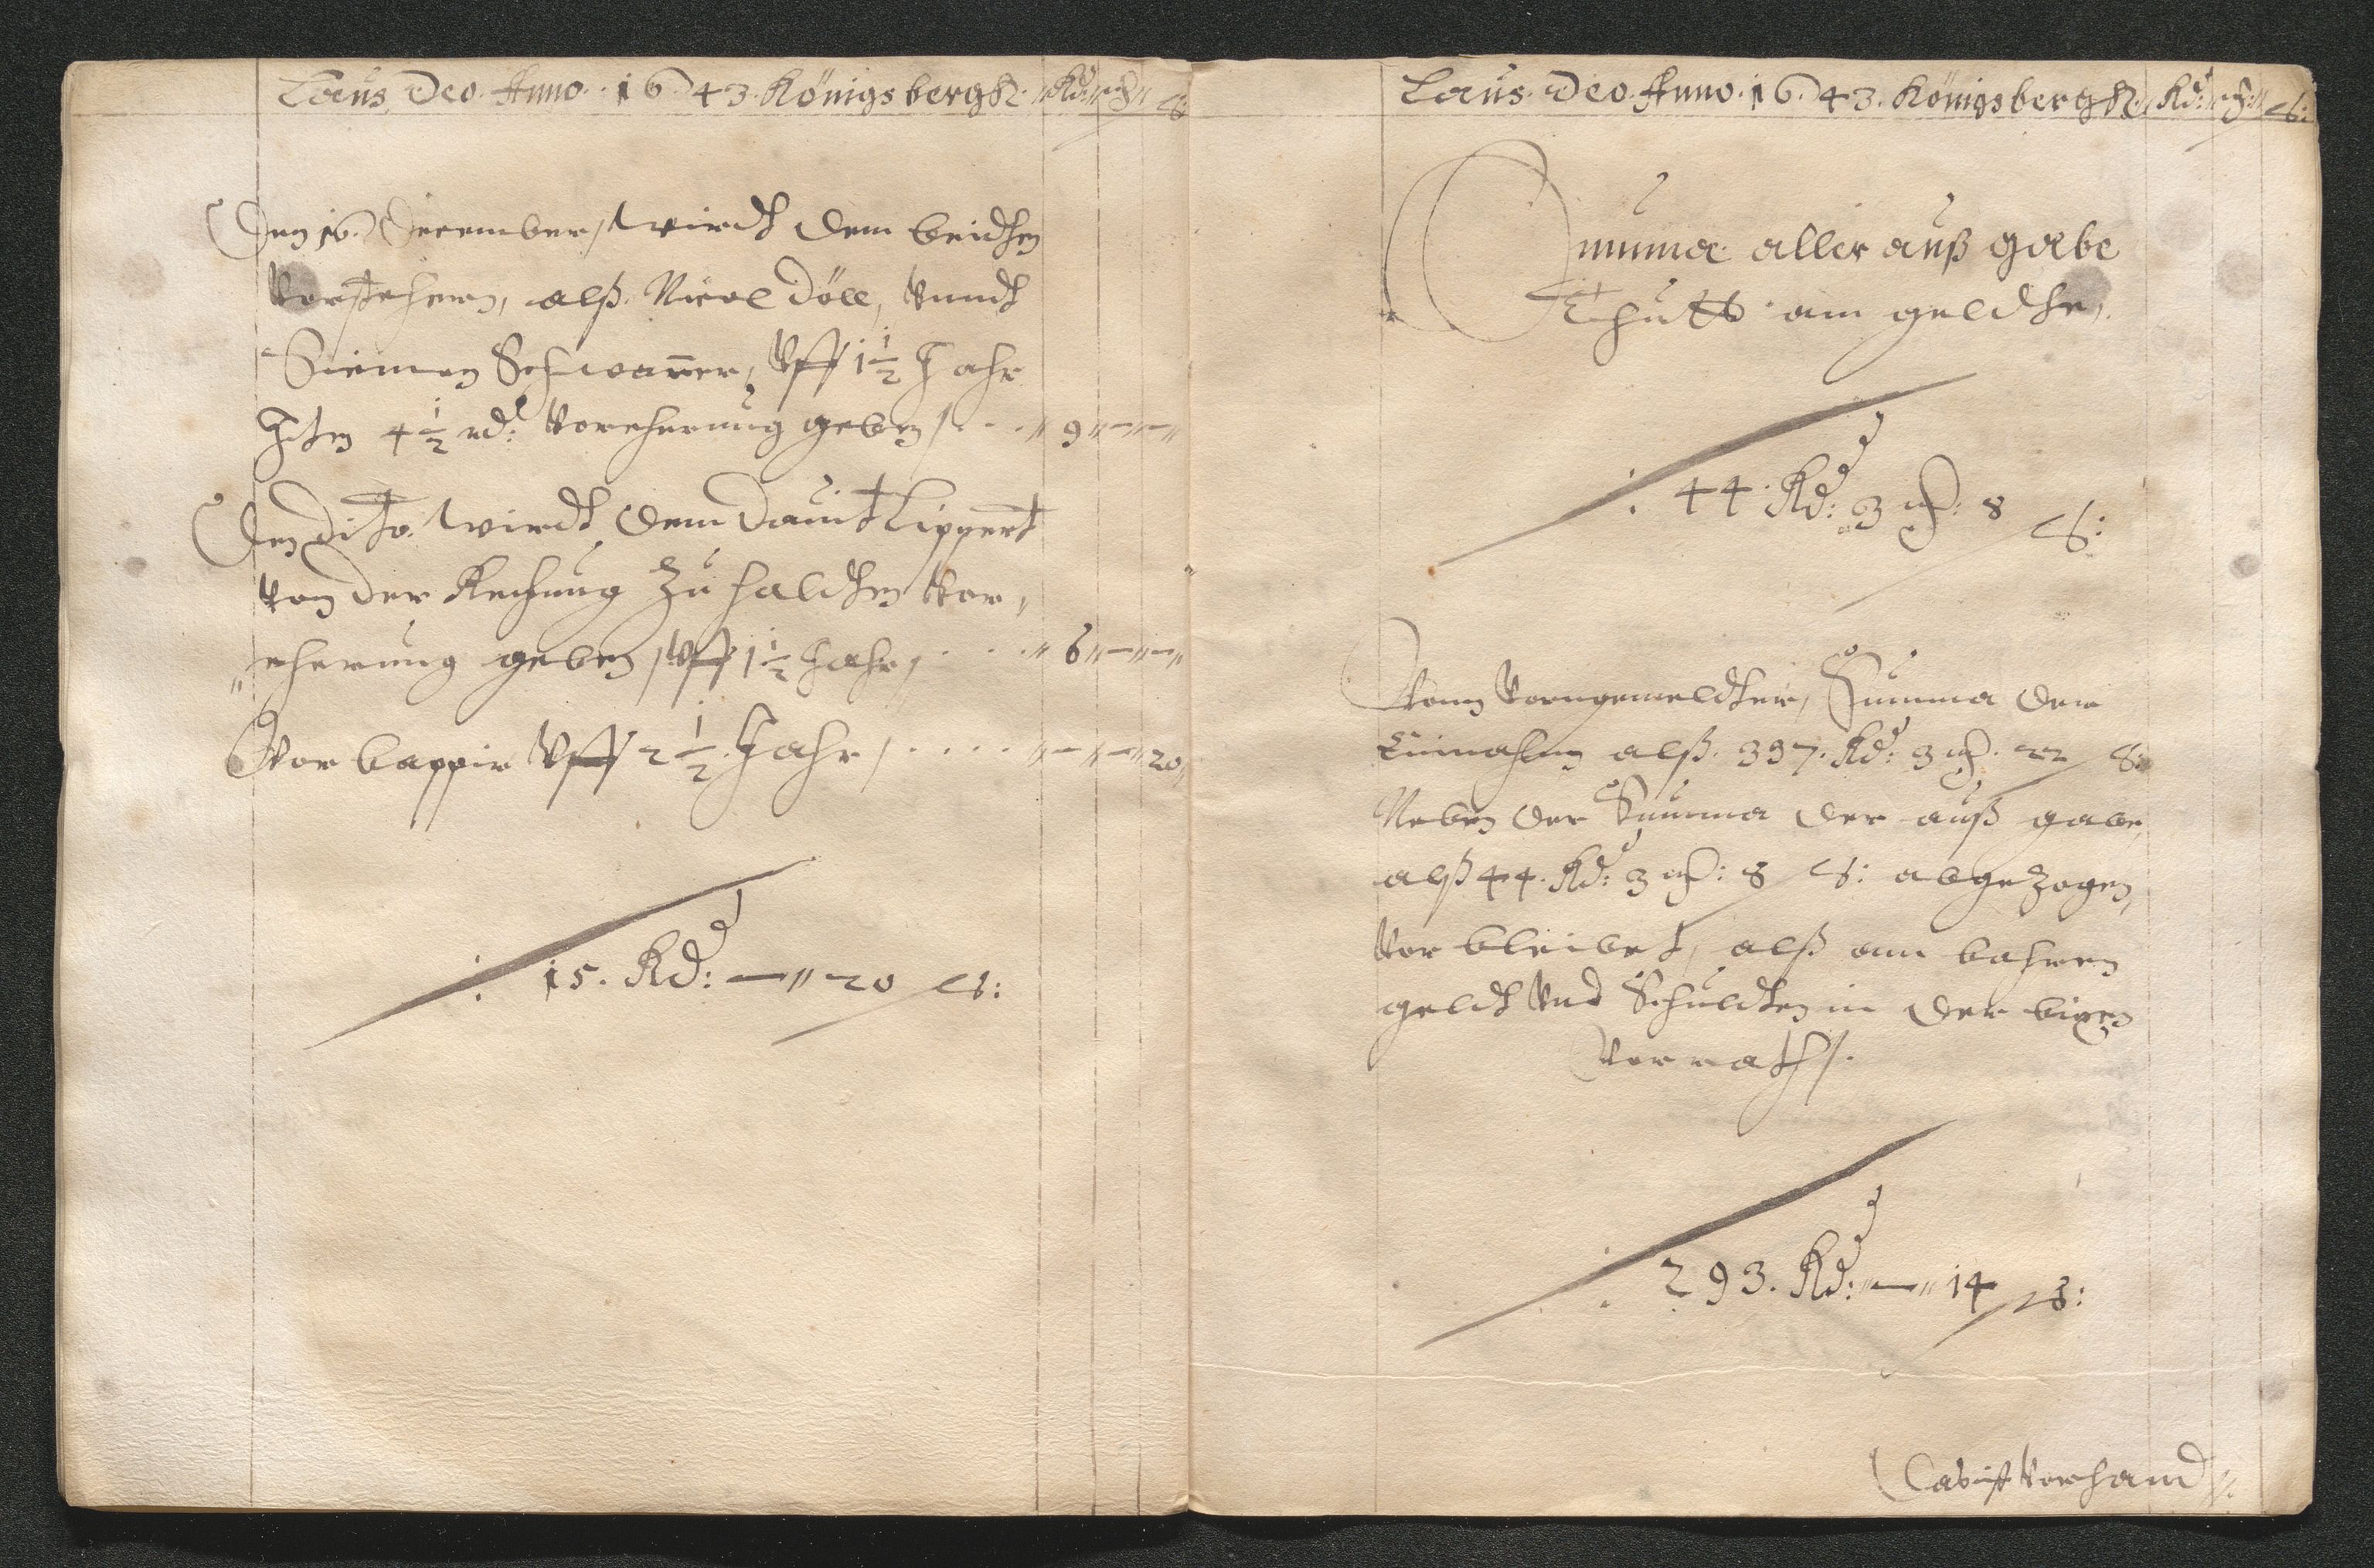 Laus Deo. Anno. 1643. Königsbergk. Rd: ₰: ß:
Den 16. December, wirdt dem beidten
Vorstehern, alß. Nicol Döll, vundt
Siemen Schwaner, vff 1½ Jahr
Jeden 4½ rd: Vorehrung geben /. . . 9 – –
Den dito. wirdt dem Dauit Lippert
von der Rechnung Zu haldten Vor,
ehrung geben, vff 1½ Jahr, . . . 6 – –
Vor bappir vff 2½ Jahr /. . . . – – 20
15. Rd: – 20 ß:
Laus. Deo. Anno. 1643. Königsbergk. Rd: ₰: ß:
Summa aller auß gabe
Thutt am geldte,
44. Rd: 3 8 ß:
Vonn vorngemeldter, Summa der
Einnahm alß. 337. Rd: 3 22 ß:
Neben der Summa der auß gabe,
alß 44. Rd: 3 8 ß: abgezogen,
vor bleibet, alß ann bahren
geldt vnd Schuldten in der bixen
Vorrath /.
293. Rd: – 14 ß:
vorhand